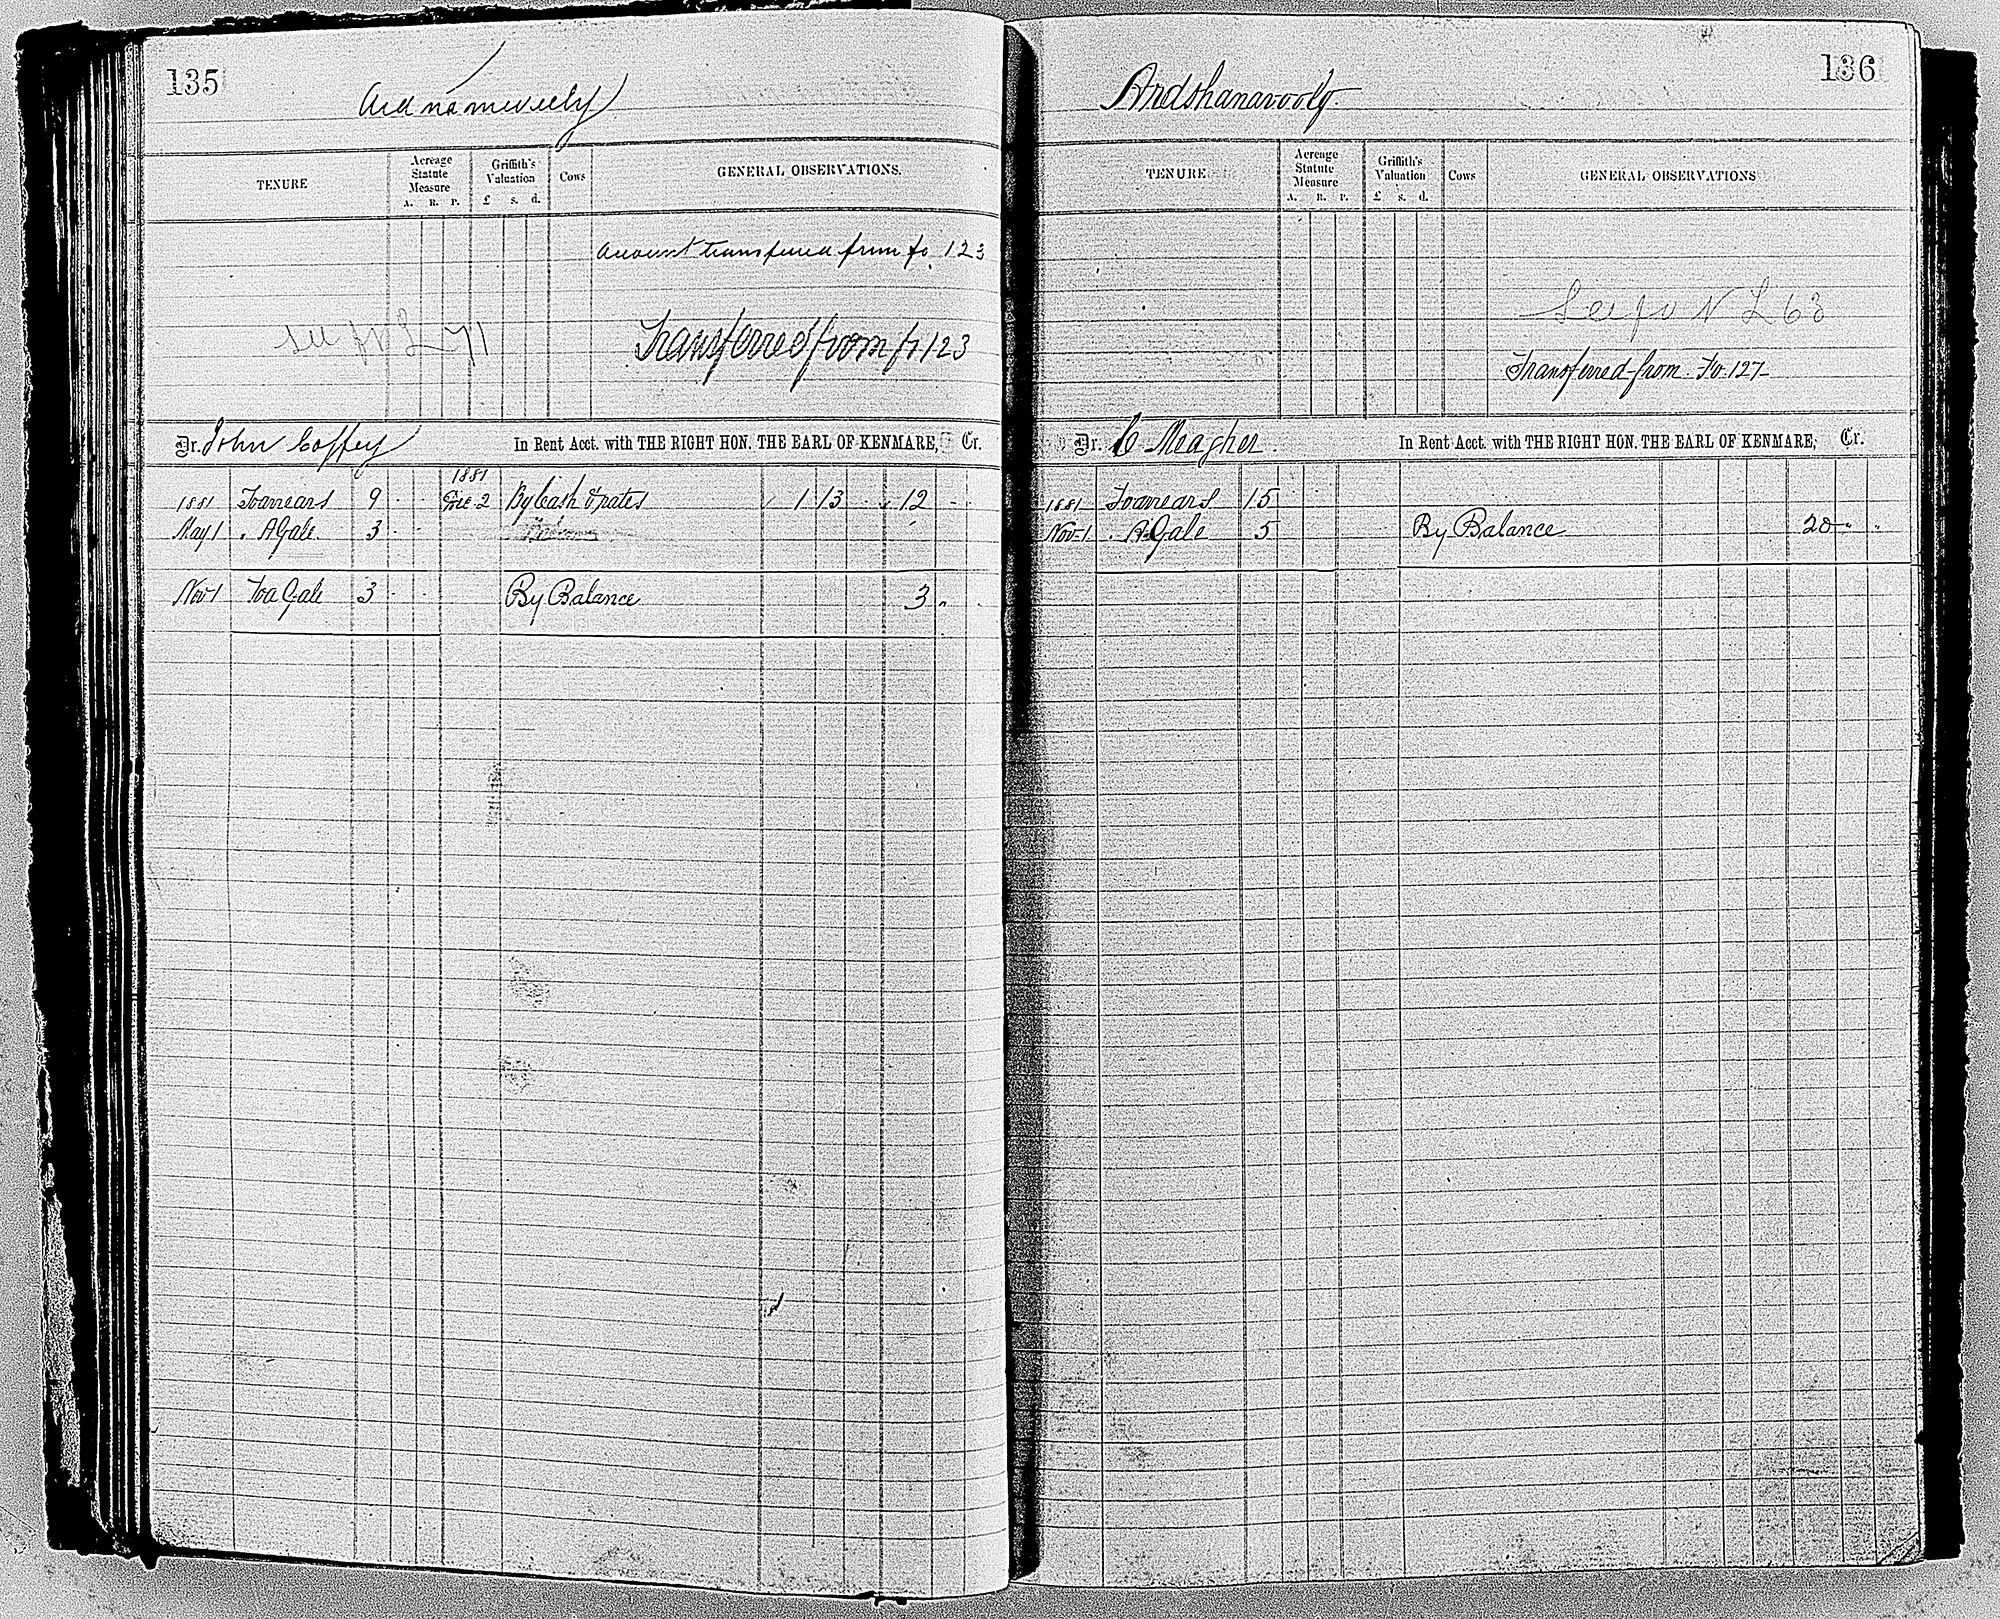 135
Ardnameweely
TENURE
Acreage Statute Measure
A. R. P.
Griffith's Valuation
£ s. d.
Cows
GENERAL OBSERVATIONS.
Account transferred from fo. 123
See fo N L 71
Transferred from fo 123
Dr. John Coffey In Rent Acct. with THE RIGHT HON. THE EARL OF KENMARE, Cr.
1881
1881 To arrears 9 Dec 2 By Cash & rates 1 13 12
May 1 " A Gale 3
Nov 1 To a Gale 3 By Balance 3
136
Ardshanavooly
TENURE
Acreage Statute Measure
A. R. P.
Griffith's Valuation
£ s. d.
Cows
GENERAL OBSERVATIONS
See fo N L 63
Transferred from Fo. 127
Dr. C Meagher. In Rent Acct. with THE RIGHT HON. THE EARL OF KENMARE, Cr.
1881 To arrears 15
Nov 1 " A Gale 5 By Balance 20 " "